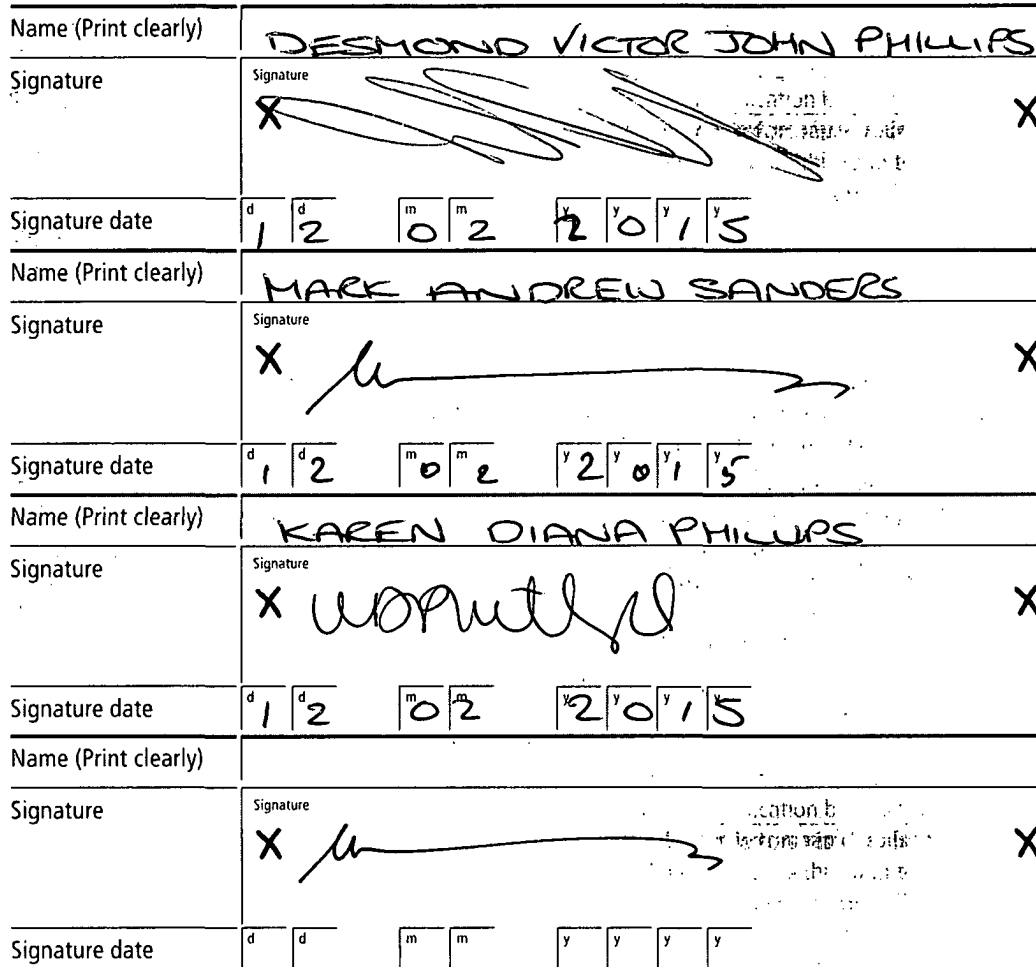 Name (Print clearly) DESMOND VICTOR JOHN PHILLIPS
Signature Signature
X X
Signature date d 1 d 2 m 0 m 2 y 2 y 0 y 1 y 5
Name (Print clearly) MARK ANDREW SANDERS
Signature Signature
X X
Signature date d 1 d 2 m 0 m 2 y 2 y 0 y 1 y 5
Name (Print clearly) KAREN DIANA PHILLIPS
Signature Signature
X X
Signature date d 1 d 2 m 0 m 2 y 2 y 0 y 1 y 5
Name (Print clearly)
Signature Signature
X X
Signature date d d m m y y y y